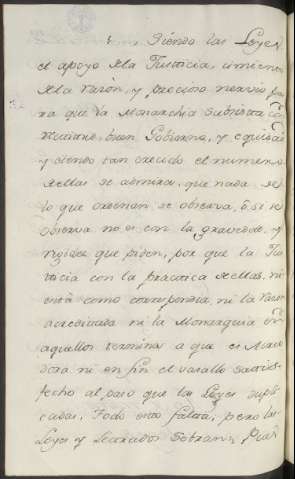 Siendo las Leyes
el apoyo dela Justicia, cimiento
dela razon, y preciso nervio pa
ra que la Monarchia subsista con
rectitud, buen Gobierno, y equidad
y siendo tan crecido el numero
dellas se admira, que nada de
lo que ordenan se observa, ô si se
observa no es con la gravedad, y
rigidez que piden, por que la Jus
ticia con la practica dellas, ni
està como corresponde, ni la razon
acreditada ni la Monarquia en
aquellos terminos a que es
ni en fin el vasallo satis
fecho al paso que las Leyes supli
cadas. Todo esto falta, pero las
Leyes y Letrados sobran,